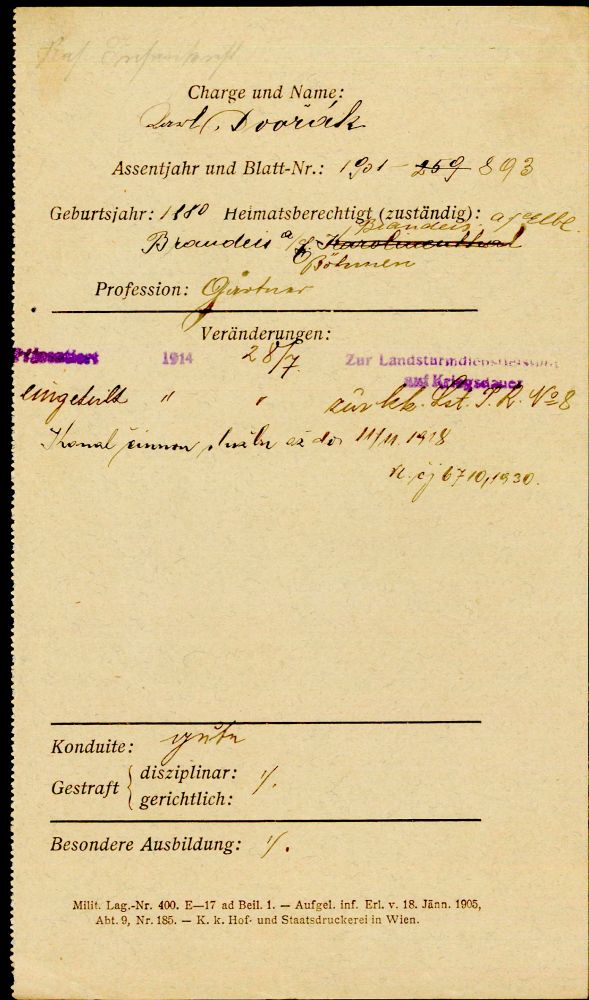 Charge und Name:
Karl Dvořák
Assentjahr und Blatt-Nr.: 1901 - 259 893
Geburtsjahr: 1880 Heimatsberechtigt (zuständig):
Brandeis a/Elbe.
Brandeis a/E Karolinenthal
Böhmen
Profession: Gärtner
Veränderungen:
Präsentiert 1914 28/7 Zur Landsturmdienstleistung
auf Kriegsdauer
eingeteilt " " zur k.k. Lst. I. R. No 8
Konal činnou službu až do 11/11 1918
čj 6710/1930.
Konduite: gute
Gestraft { disziplinar: ·/.
gerichtlich:
Besondere Ausbildung: ·/.
Milit. Lag.-Nr. 400. E—17 ad Beil. 1. — Aufgel. inf. Erl. v. 18. Jänn. 1905,
Abt. 9, Nr. 185. — K. k. Hof- und Staatsdruckerei in Wien.